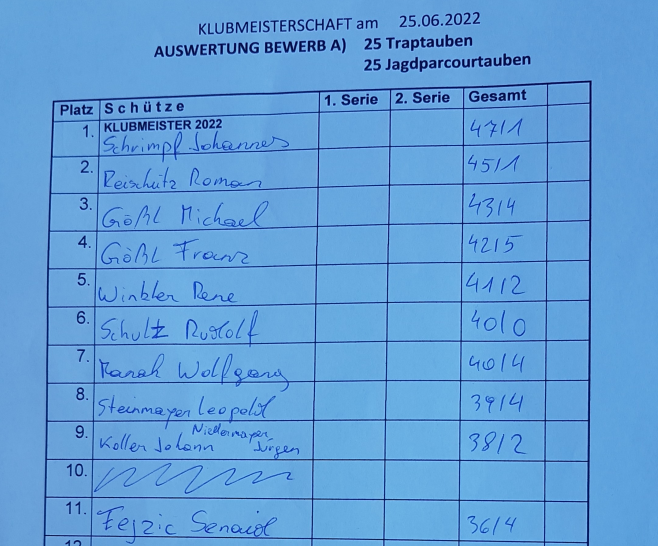 KLUBMEISTERSCHAFT am 25.06.2022
AUSWERTUNG BEWERB A) 25 Traptauben
25 Jagdparcourtauben
Platz Schütze 1. Serie 2. Serie Gesamt
1. KLUBMEISTER 2022
Schrimpf Johannes 47/1
2. Reischütz Roman 45/1
3. Gößl Michael 43/4
4. Gößl Franz 42/5
5. Winkler Rene 41/2
6. Schultz Rudolf 40/0
7. Wolfgang 40/4
8. Steinmayer Leopold 39/4
9. Koller Johann Niedermayer Jürgen 38/2
10.
11. Fejzic Senaid 36/4